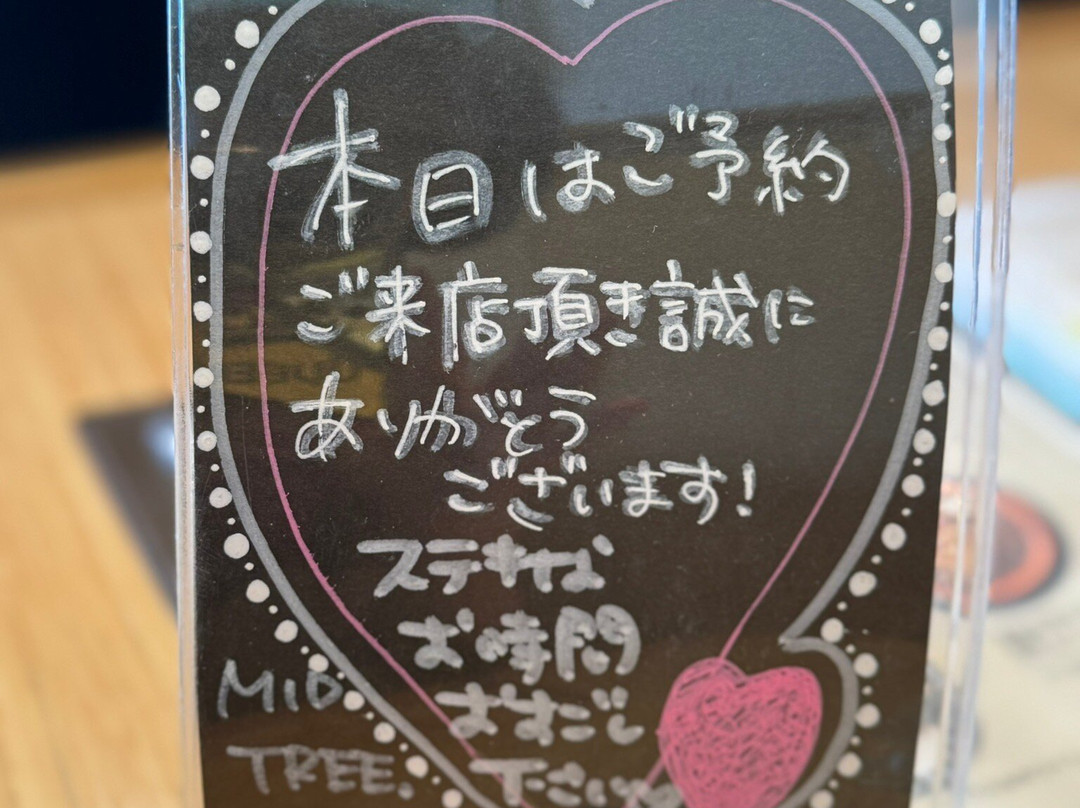 本日はご予約
ご来店頂き誠に
ありがとう
ございます!
ステキな
お時間
おすごし
下さい
MID
TREE.